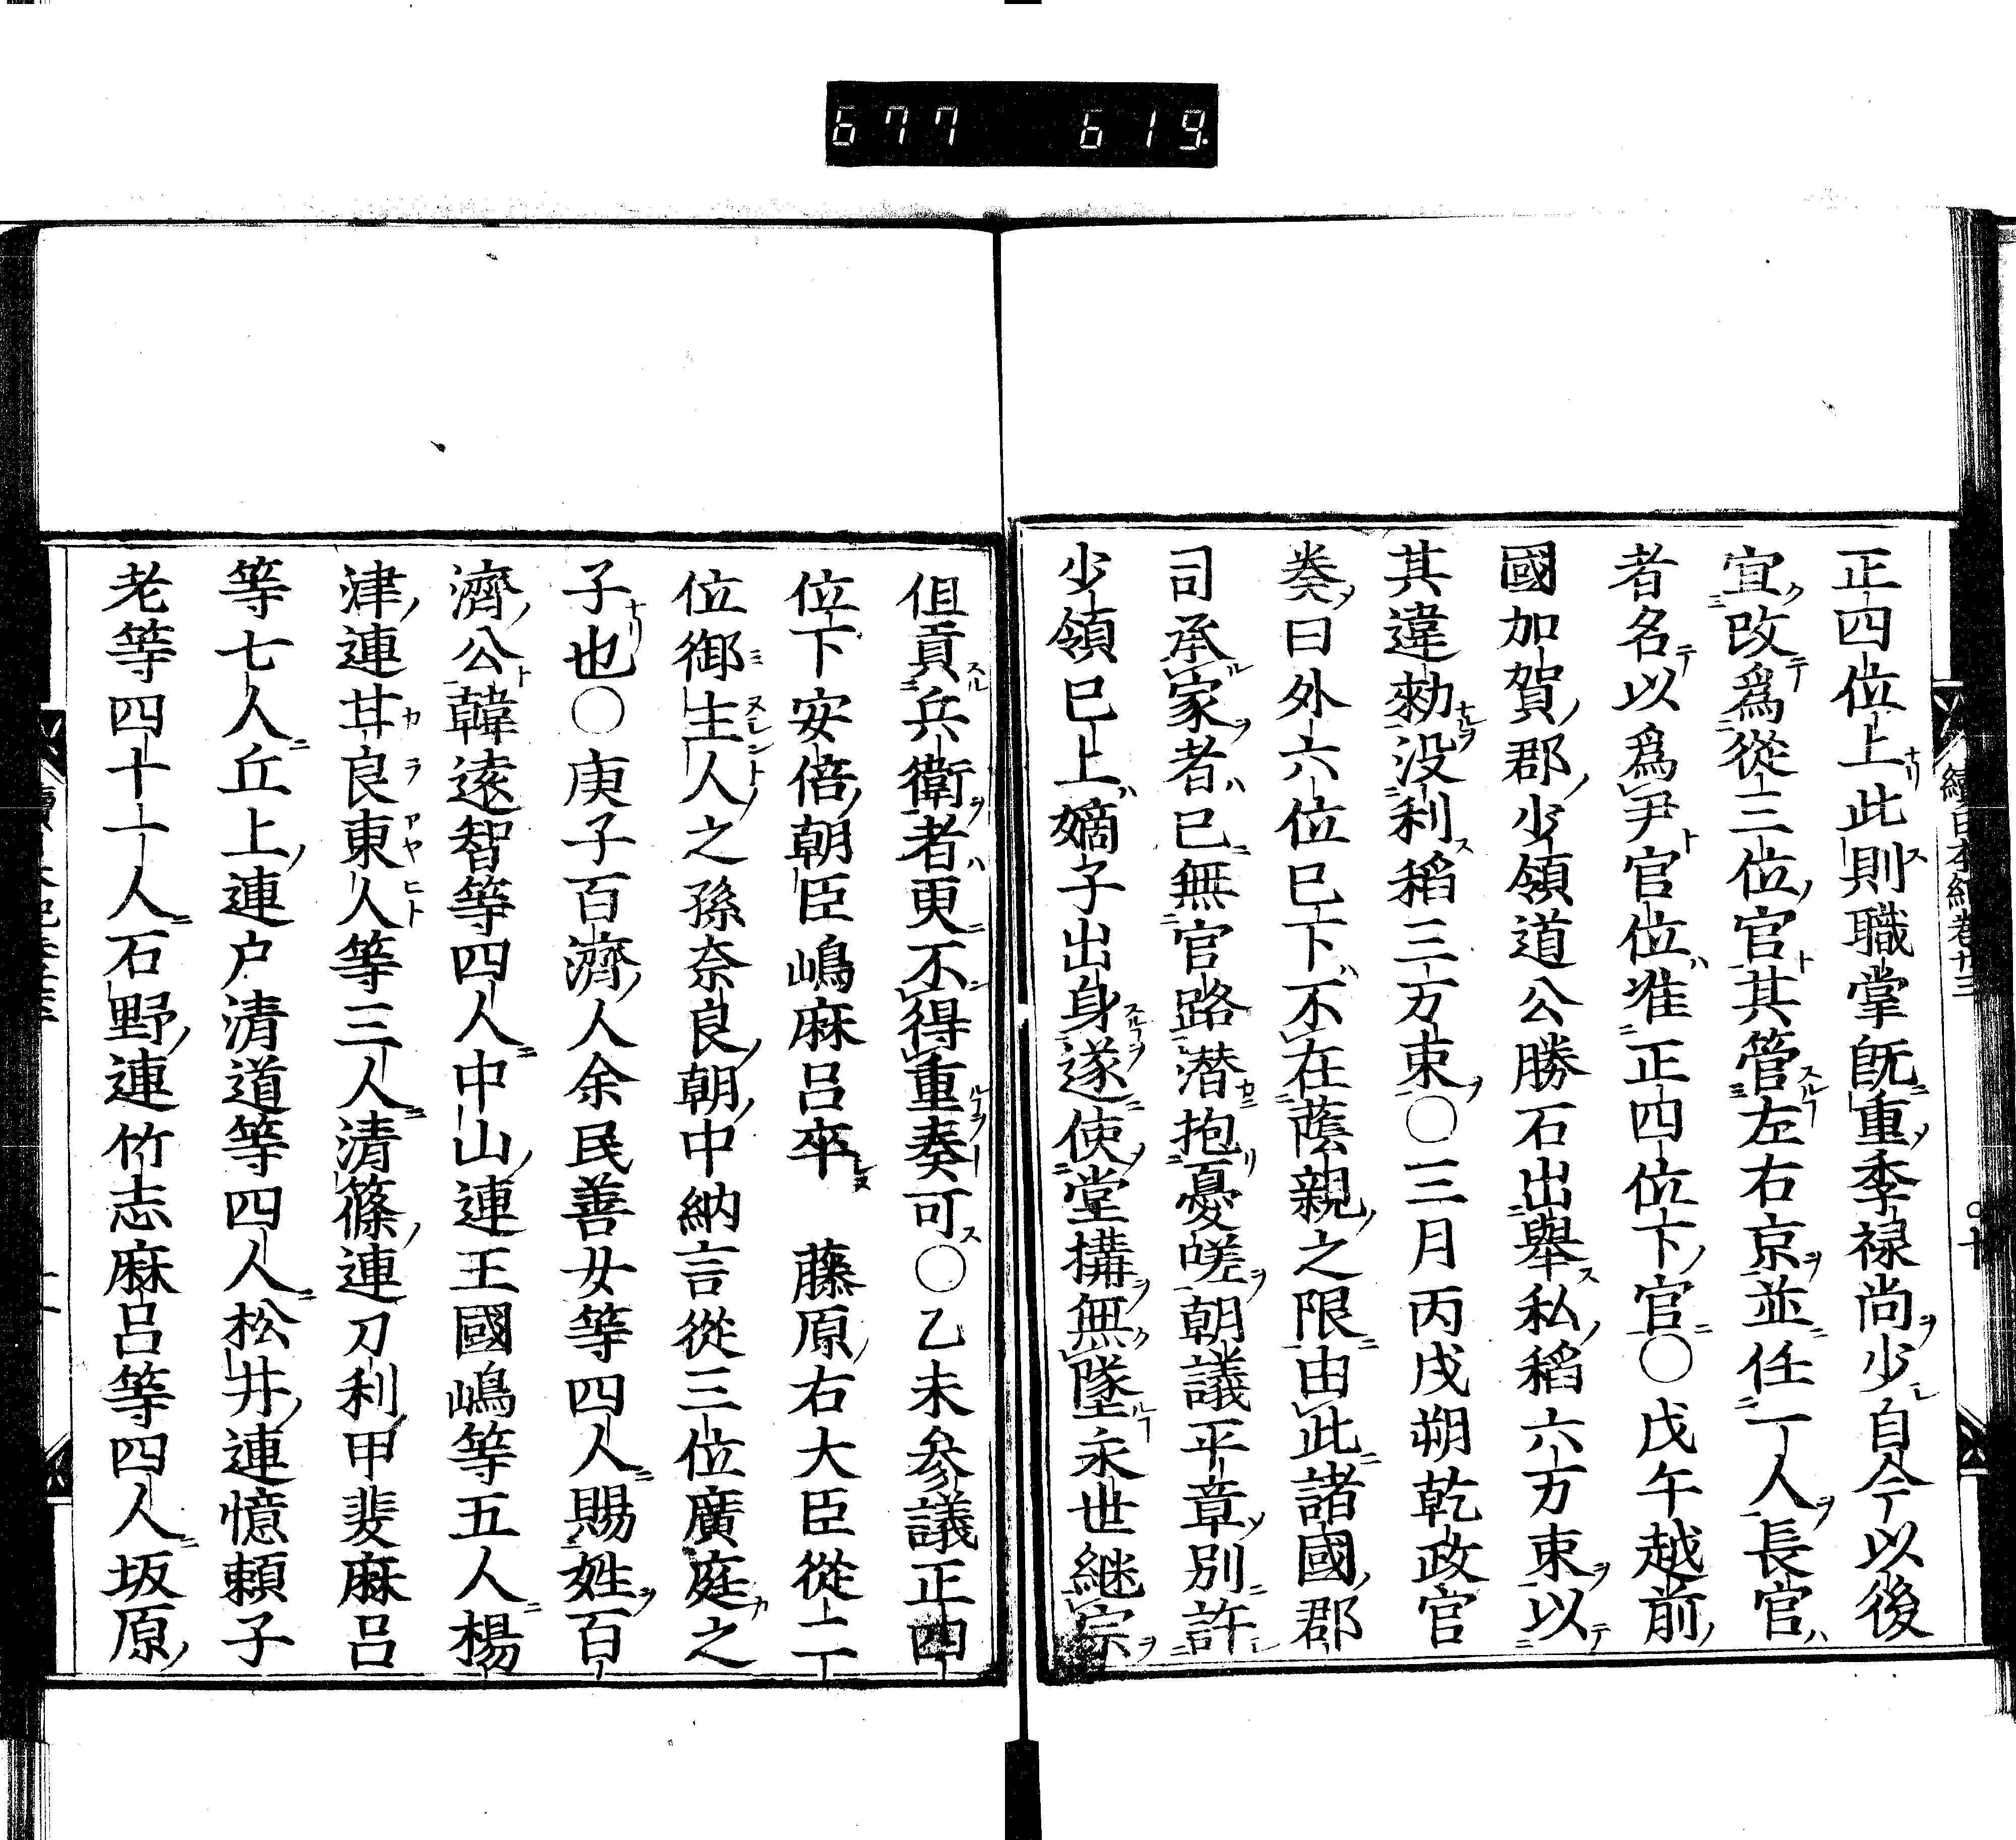 677 619.
續日本紀卷廿三
正四位上此則職掌既重季禄尚少自今以後
宜改爲從三位官其管左右京並任一人長官
者名以爲尹官位准正四位下官〇戊午越前
國加賀郡少領道公勝石出擧私稻六万束以
其違勅没利稻三万束〇三月丙戌朔乾政官
奏曰外六位巳下不在蔭親之限由此諸國郡
司承家者已無官路潜抱憂嗟朝議平章別許
少領已上嫡子出身遂使堂搆無墜永世継宗
但貢兵衛者更不得重奏可〇乙未參議正四
位下安倍朝臣嶋麻呂卒　藤原右大臣從二
位御主人之孫奈良朝中納言從三位廣庭之
子也〇庚子百濟人余民善女等四人賜姓百
濟公韓遠智等四人中山連王國嶋等五人楊
津連甘良東人等三人清篠連刀利甲斐麻呂
等七人丘上連户清道等四人松井連憶頼子
老等四十一人石野連竹志麻呂等四人坂原